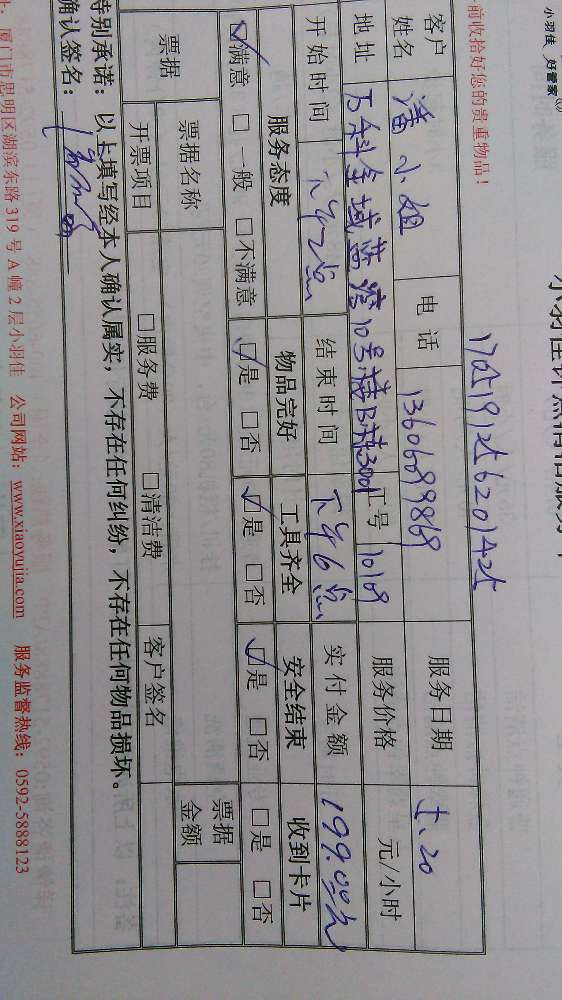 小羽佳 好管家
小羽佳钟点清洁服务
前收拾好您的贵重物品！
客户姓名 潘小姐 电话 13606099869 服务日期
地址 万科金域蓝湾10号楼B栋3001 工号 10109 服务价格 元/小时
开始时间 下午2点 结束时间 下午6点 实付金额 199.00元
服务态度 物品完好 工具齐全 安全结束 收到卡片
☑满意 □一般 □不满意 ☑是 □否 ☑是 □否 ☑是 □否 □是 □否
票据 票据名称 票据金额
开票项目 □服务费 □清洁费 客户签名
特别承诺：以上填写经本人确认属实，不存在任何纠纷，不存在任何物品损坏。
确认签名：
厦门市思明区湖滨东路 319 号 A 幢 2 层小羽佳 公司网站：www.xiaoyujia.com 服务监督热线：0592-5888123